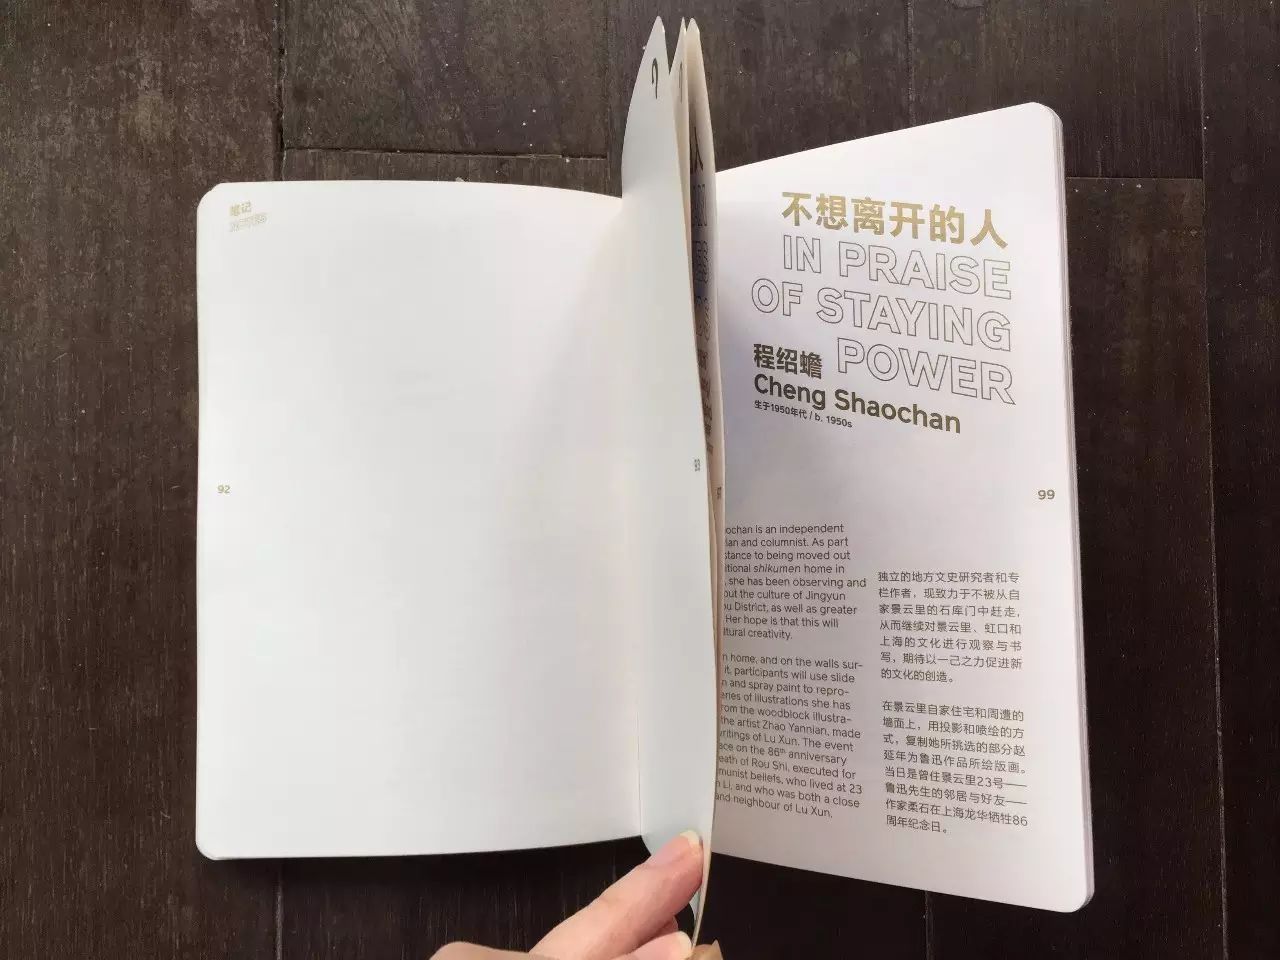 笔记
NOTES
92
93
97
不想离开的人
IN PRAISE
OF STAYING
POWER
程绍蟾
Cheng Shaochan
生于1950年代 / b. 1950s
99
ochan is an independent
ian and columnist. As part
stance to being moved out
itional shikumen home in
, she has been observing and
out the culture of Jingyun
ou District, as well as greater
Her hope is that this will
ltural creativity.
n home, and on the walls sur-
it, participants will use slide
n and spray paint to repro-
eries of illustrations she has
rom the woodblock illustra-
the artist Zhao Yannian, made
writings of Lu Xun. The event
ace on the 86th anniversary
eath of Rou Shi, executed for
munist beliefs, who lived at 23
n Li, and who was both a close
and neighbour of Lu Xun.
独立的地方文史研究者和专
栏作者，现致力于不被从自
家景云里的石库门中赶走，
从而继续对景云里、虹口和
上海的文化进行观察与书
写，期待以一己之力促进新
的文化的创造。
在景云里自家住宅和周遭的
墙面上，用投影和喷绘的方
式，复制她所挑选的部分赵
延年为鲁迅作品所绘版画。
当日是曾住景云里23号——
鲁迅先生的邻居与好友——
作家柔石在上海龙华牺牲86
周年纪念日。